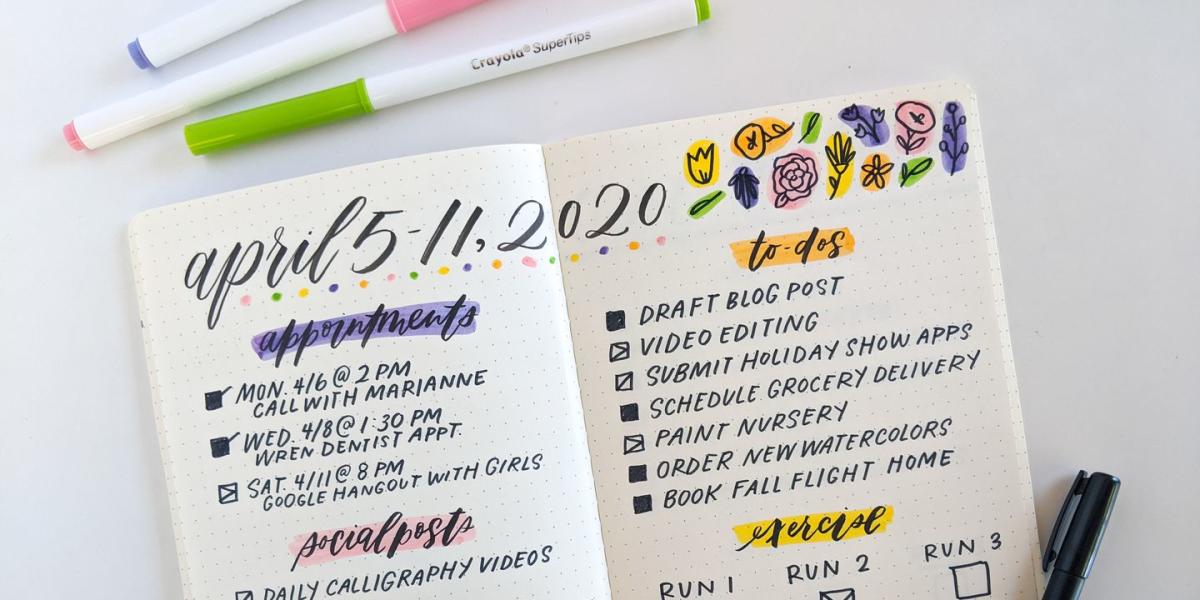 Crayola® SuperTips
april 5-11, 2020
appointments
MON. 4/6 @ 2 PM
CALL WITH MARIANNE
WED. 4/8 @ 1:30 PM
WREN DENTIST APPT.
SAT. 4/11 @ 8 PM
GOOGLE HANGOUT WITH GIRLS
social posts
DAILY CALLIGRAPHY VIDEOS
to-dos
DRAFT BLOG POST
VIDEO EDITING
SUBMIT HOLIDAY SHOW APPS
SCHEDULE GROCERY DELIVERY
PAINT NURSERY
ORDER NEW WATERCOLORS
BOOK FALL FLIGHT HOME
exercise
RUN 1 RUN 2 RUN 3